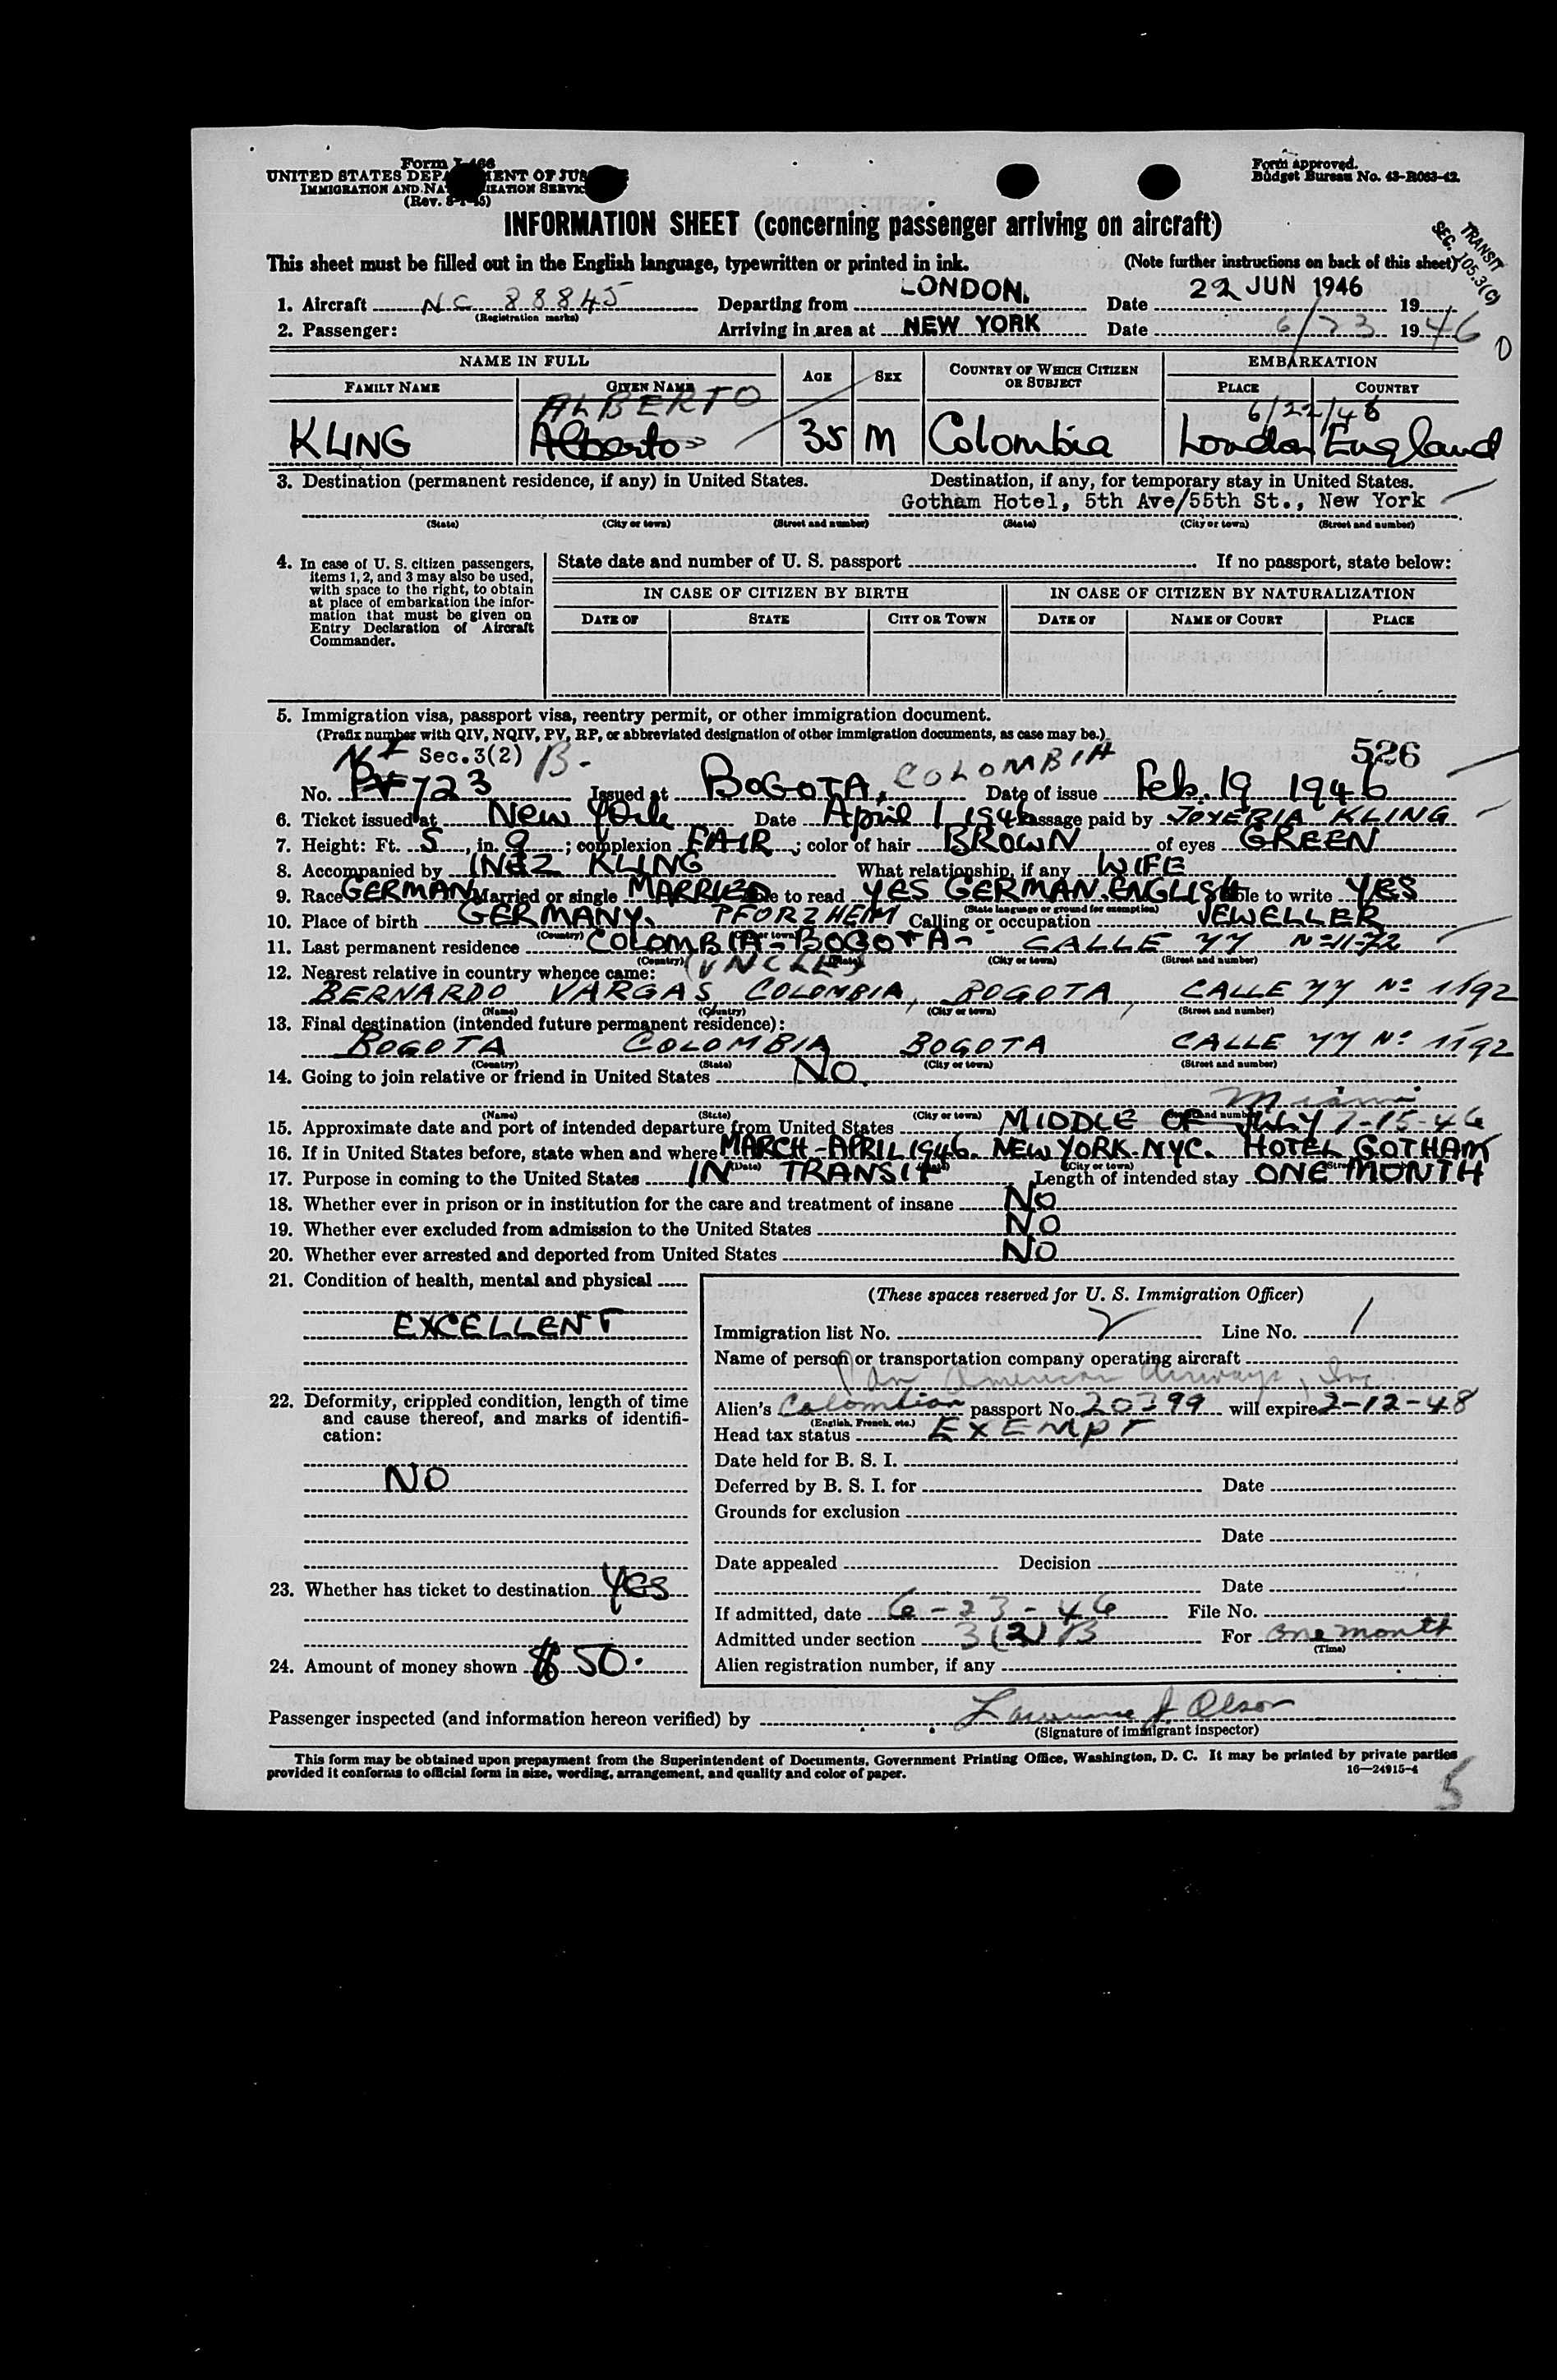 Form I-466
UNITED STATES DEPARTMENT OF JUSTICE
IMMIGRATION AND NATURALIZATION SERVICE
(Rev. 8-1-45)
Form approved.
Budget Bureau No. 43-R063-42.
INFORMATION SHEET (concerning passenger arriving on aircraft)
TRANSIT
SEC. 105.3(C)
This sheet must be filled out in the English language, typewritten or printed in ink. (Note further instructions on back of this sheet)
1. Aircraft NC 88845 Departing from LONDON. Date 22 JUN 1946 19
(Registration marks)
2. Passenger: Arriving in area at NEW YORK Date 6/23 1946
NAME IN FULL AGE SEX COUNTRY OF WHICH CITIZEN OR SUBJECT EMBARKATION
FAMILY NAME GIVEN NAME PLACE COUNTRY
ALBERTO 6/22/46
KLING Alberto 35 M Colombia London England
3. Destination (permanent residence, if any) in United States. Destination, if any, for temporary stay in United States.
Gotham Hotel, 5th Ave/55th St., New York
(State) (City or town) (Street and number) (State) (City or town) (Street and number)
4. In case of U. S. citizen passengers, items 1, 2, and 3 may also be used, with space to the right, to obtain at place of embarkation the information that must be given on Entry Declaration of Aircraft Commander.
State date and number of U. S. passport If no passport, state below:
IN CASE OF CITIZEN BY BIRTH IN CASE OF CITIZEN BY NATURALIZATION
DATE OF STATE CITY OR TOWN DATE OF NAME OF COURT PLACE
5. Immigration visa, passport visa, reentry permit, or other immigration document.
(Prefix number with QIV, NQIV, PV, RP, or abbreviated designation of other immigration documents, as case may be.)
Sec.3(2) B. 526
No. PV 723 Issued at BOGOTA, COLOMBIA Date of issue Feb. 19 1946
6. Ticket issued at New York Date April 1 1946 Passage paid by JOYERIA KLING
7. Height: Ft. 5, in. 9; complexion FAIR; color of hair BROWN of eyes GREEN
8. Accompanied by INEZ KLING What relationship, if any WIFE
9. Race GERMAN Married or single MARRIED Able to read YES GERMAN. ENGLISH Able to write YES
(State language or ground for exemption)
10. Place of birth GERMANY. PFORZHEIM Calling or occupation JEWELLER
(Country) (City or town)
11. Last permanent residence COLOMBIA - BOGOTA - CALLE 77 No 11-72
(Country) (State) (City or town) (Street and number)
12. Nearest relative in country whence came: (UNCLE)
BERNARDO VARGAS COLOMBIA, BOGOTA, CALLE 77 No 1192
(Name) (Country) (City or town) (Street and number)
13. Final destination (intended future permanent residence):
BOGOTA COLOMBIA BOGOTA CALLE 77 No 1192
(Country) (State) (City or town) (Street and number)
14. Going to join relative or friend in United States NO.
Miami
(Name) (State) (City or town) (Street and number)
15. Approximate date and port of intended departure from United States MIDDLE OF JULY 7-15-46
16. If in United States before, state when and where MARCH - APRIL 1946. NEW YORK. NYC. HOTEL GOTHAM
(Date) (State) (City or town)
17. Purpose in coming to the United States IN TRANSIT Length of intended stay ONE MONTH
18. Whether ever in prison or in institution for the care and treatment of insane NO
19. Whether ever excluded from admission to the United States NO
20. Whether ever arrested and deported from United States NO
21. Condition of health, mental and physical
EXCELLENT
22. Deformity, crippled condition, length of time and cause thereof, and marks of identification:
NO
23. Whether has ticket to destination YES
24. Amount of money shown $ 50.
(These spaces reserved for U. S. Immigration Officer)
Immigration list No. 2 Line No. 1
Name of person or transportation company operating aircraft
Pan American Airways, Inc.
Alien's Colombian passport No. 20399 will expire 2-12-48
(English, French, etc.)
Head tax status EXEMPT
Date held for B. S. I.
Deferred by B. S. I. for Date
Grounds for exclusion
Date
Date appealed Decision
Date
If admitted, date 6-23-46 File No.
Admitted under section 3(2)B For one month
(Time)
Alien registration number, if any
Passenger inspected (and information hereon verified) by Lawrence J. Olson
(Signature of immigrant inspector)
This form may be obtained upon prepayment from the Superintendent of Documents, Government Printing Office, Washington, D. C. It may be printed by private parties
provided it conforms to official form in size, wording, arrangement, and quality and color of paper.
16—24915-4
5